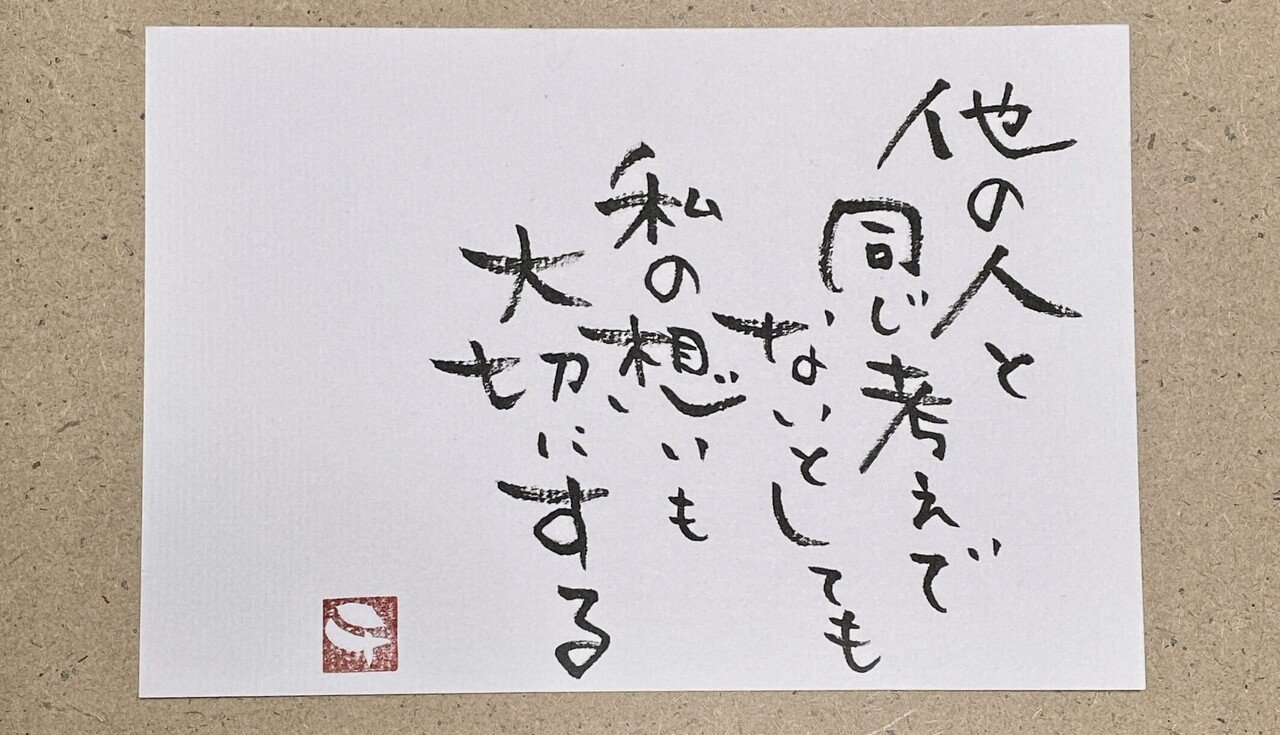 他の人と
同じ考えで
ないとしても
私の想いも
大切にする